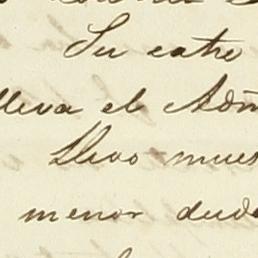 Su catre
lleva el Adm
Llevo mues
menor duda